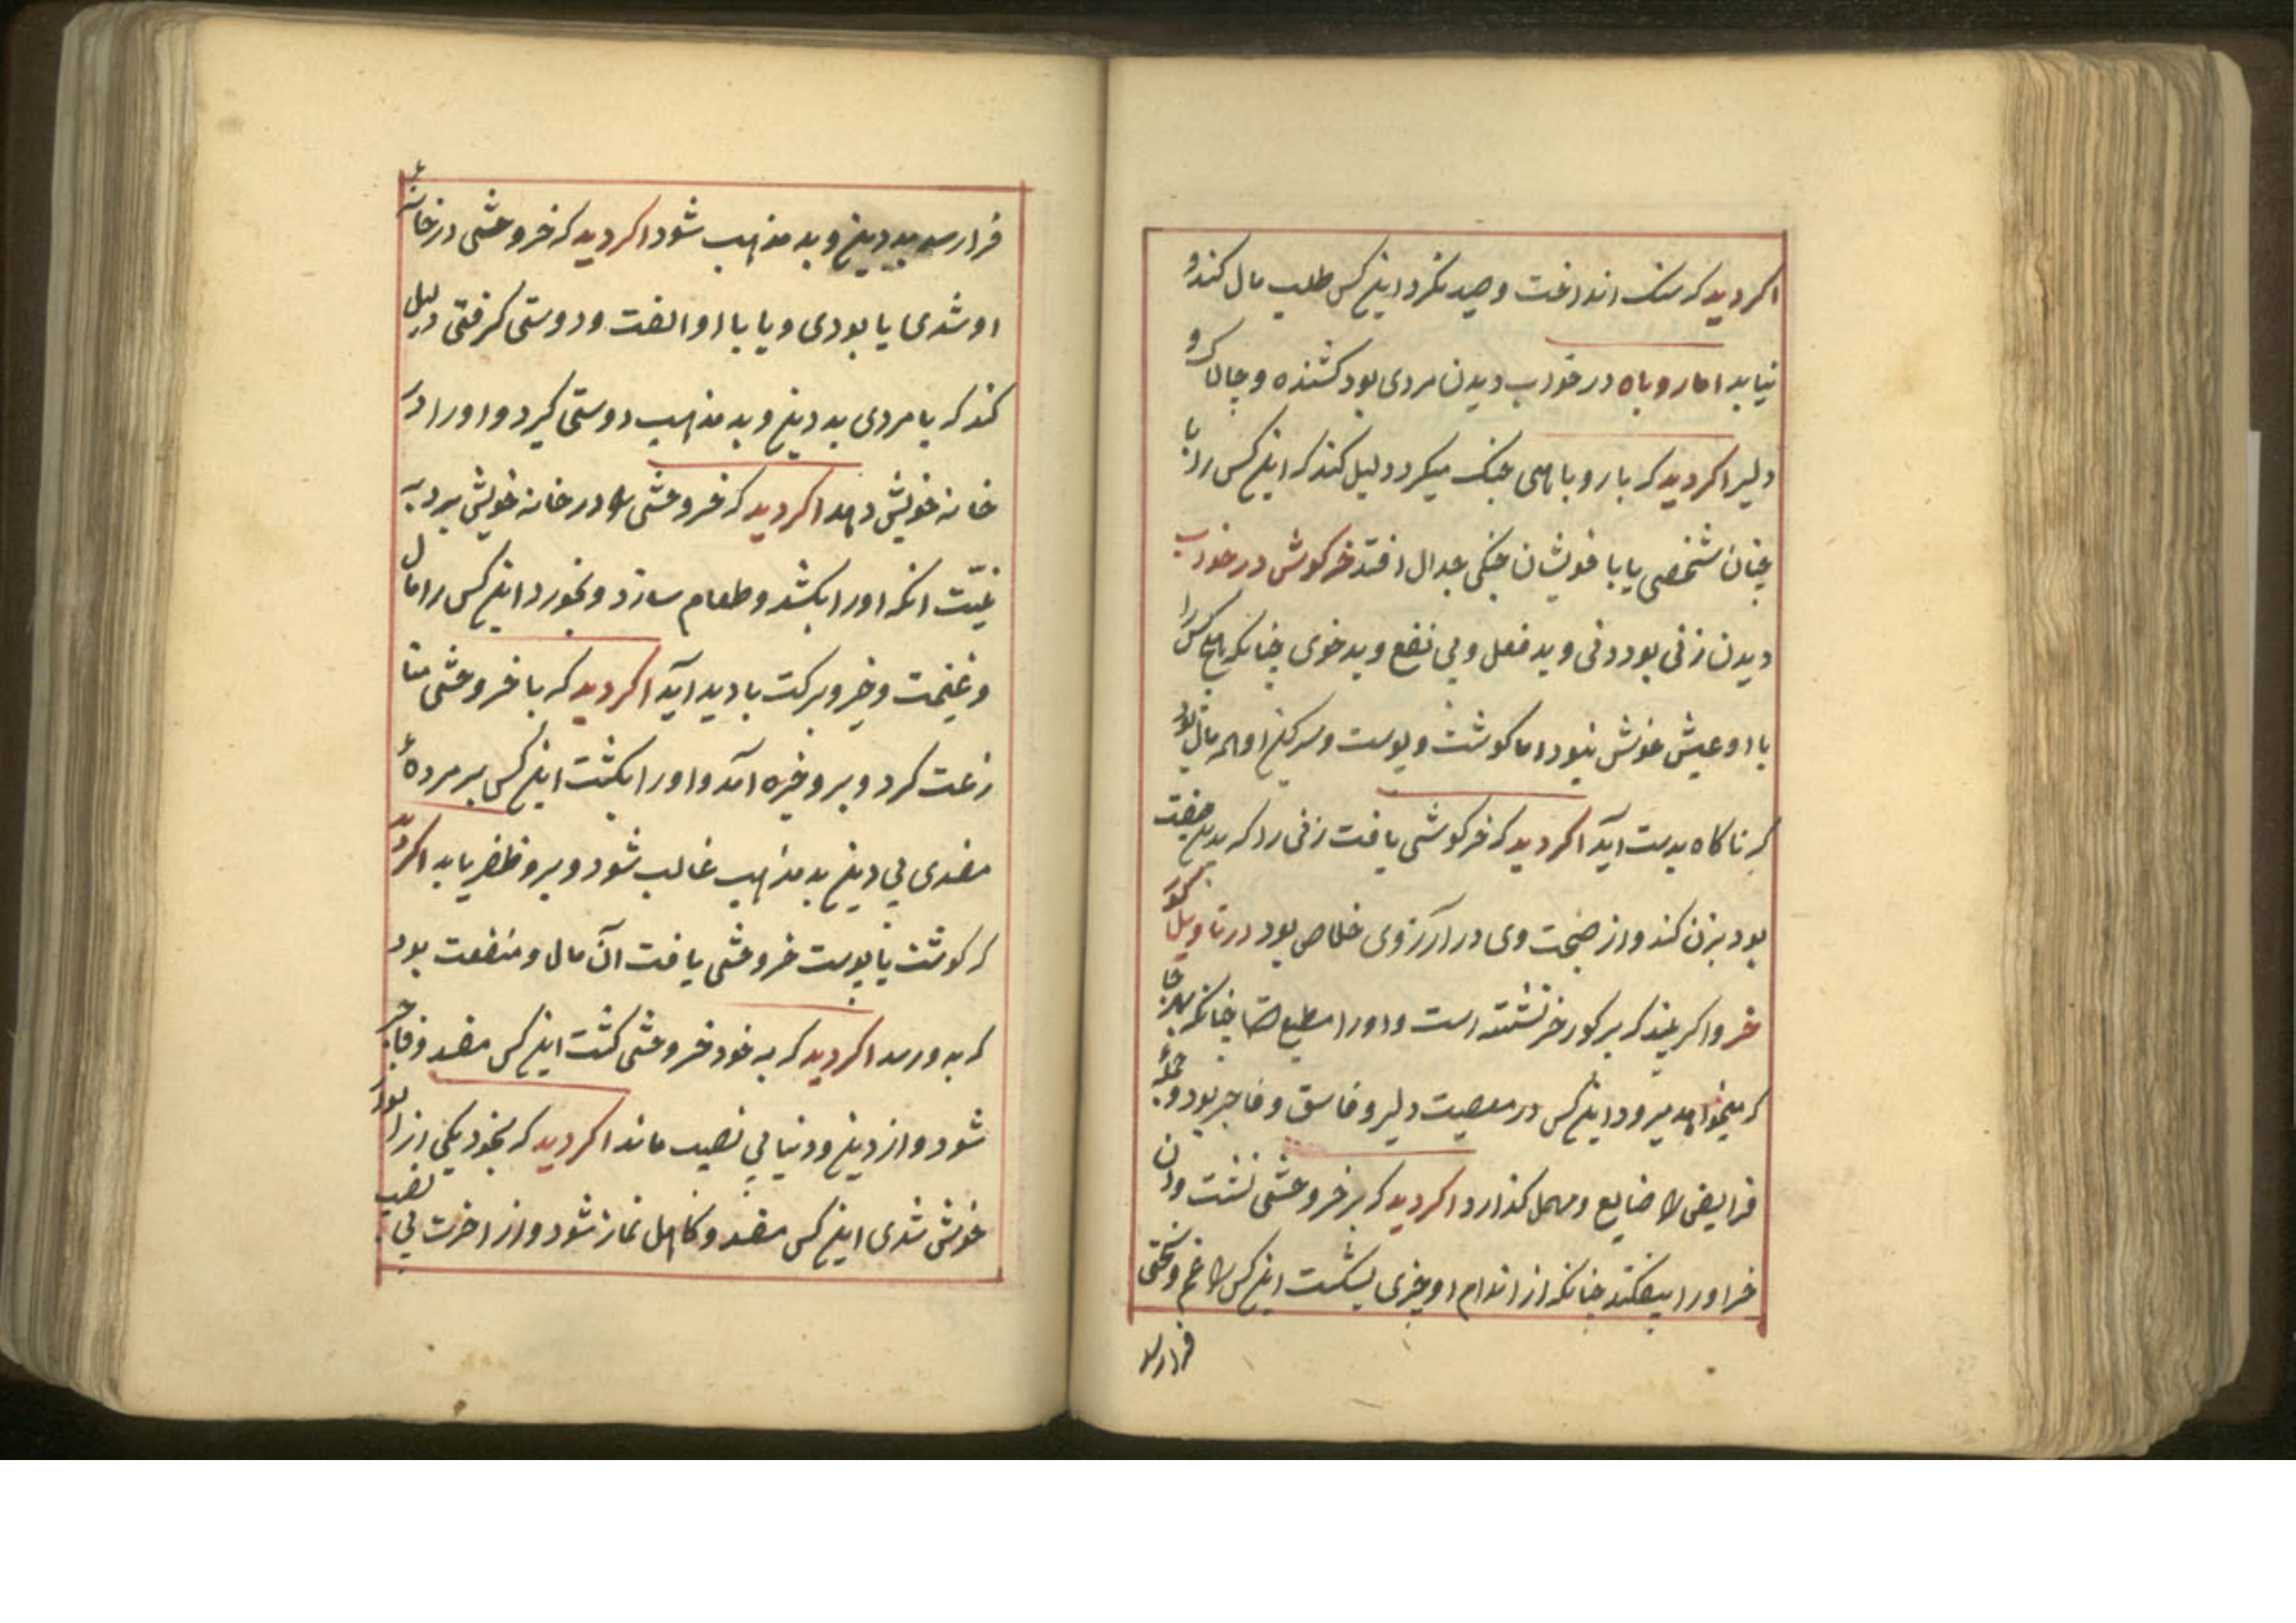 اکر دید که سنک انداخت و صید نکرد این کس طلب مال کند و
نیابد اما روباه در خواب دیدن مردی بود کشنده و چالاک و
دلیر اکر دید که با روباهی جنک میکرد دلیل کند که این کس را با
چنان شخصی یا با خویشان جنکی جدال افتد خرکوش در خواب
دیدن زنی بود دنی و بد فعل و بی نفع و بد خوی چنانکه این کس را
با او عیش خوش نبود اما کوشت و پوست و سرکین او همه مال بود
که ناکاه بدست آید اکر دید که خرکوشی یافت زنی را که بدین صفت
بود بزن کند و از صحبت وی در آرزوی خلاص بود در تاویل کور
خر و اکر بیند که بر کور خر نشسته است و او را مطیع چنانکه هر جا
که میخواهد میرود این کس در معصیت دلیر و فاسق و فاجر بود و
فرایض را ضایع و مهمل کذارد اکر دید که بر خروحشی نشست وان
خر او را بیفکند چنانکه از اندام او چیزی بشکست این کس را غم و سختی
فرا رسد
فرا رسد بد دین و بد مذهب شود اکر دید که خروحشی در خانهٔ
او شدی یا بودی و یا با او الفت و دوستی کرفتی دلیل
کند که با مردی بد دین و بد مذهب دوستی کیرد و او را در
خانه خویش دهد اکر دید که خروحشی را در خانه خویش برد به
نیّت انکه او را بکشد و طعام سازد و بخورد این کس را مال
و غنیمت و خیر و برکت بادید آید اکر دید که با خروحشی منا
زعت کرد و بر و خیره آمد و او را بکشت این کس بر مردهٔ
مفسدی بی دین بد مذهب غالب شود و بر و ظفر یابد اکر دید
که کوشت یا پوست خروحشی یافت آن مال و منفعت بود
که به و رسد اکر دید که به خود خروحشی کشت این کس مفسد و فاجر
شود و از دین و دنیا بی نصیب ماند اکر دید که بخود یکی ازانور
خوش شدی این کس مفسد و کاهل نماز شود و از اخرت بی نصیب